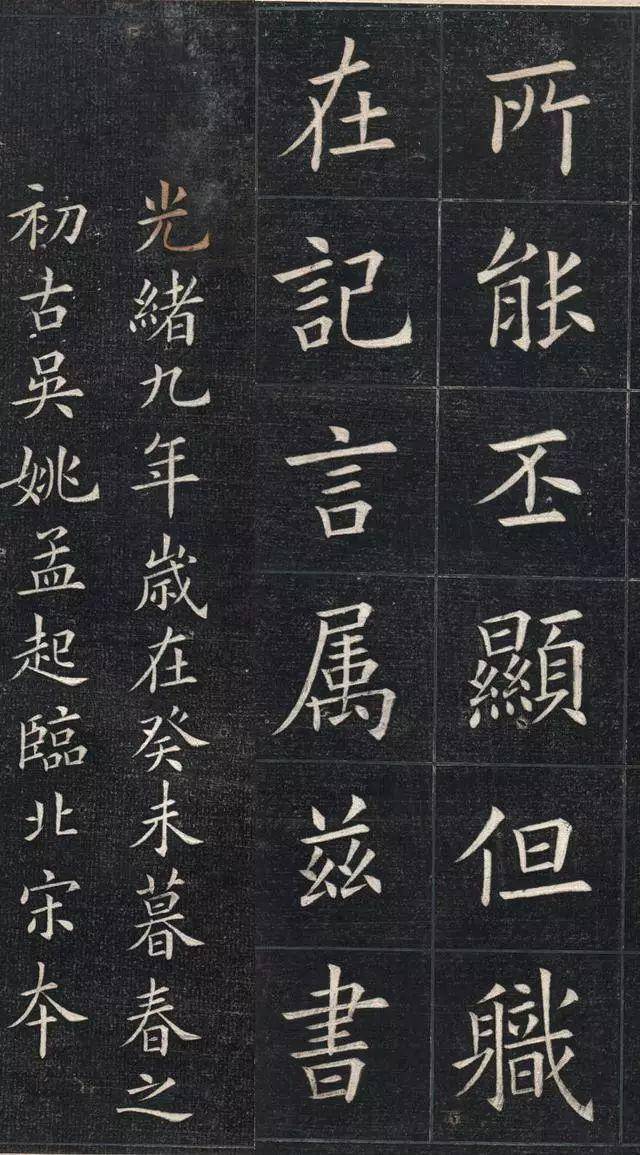 所能丕顯但職
在記言属兹書
光緒九年歳在癸未暮春之
初古吳姚孟起臨北宋本